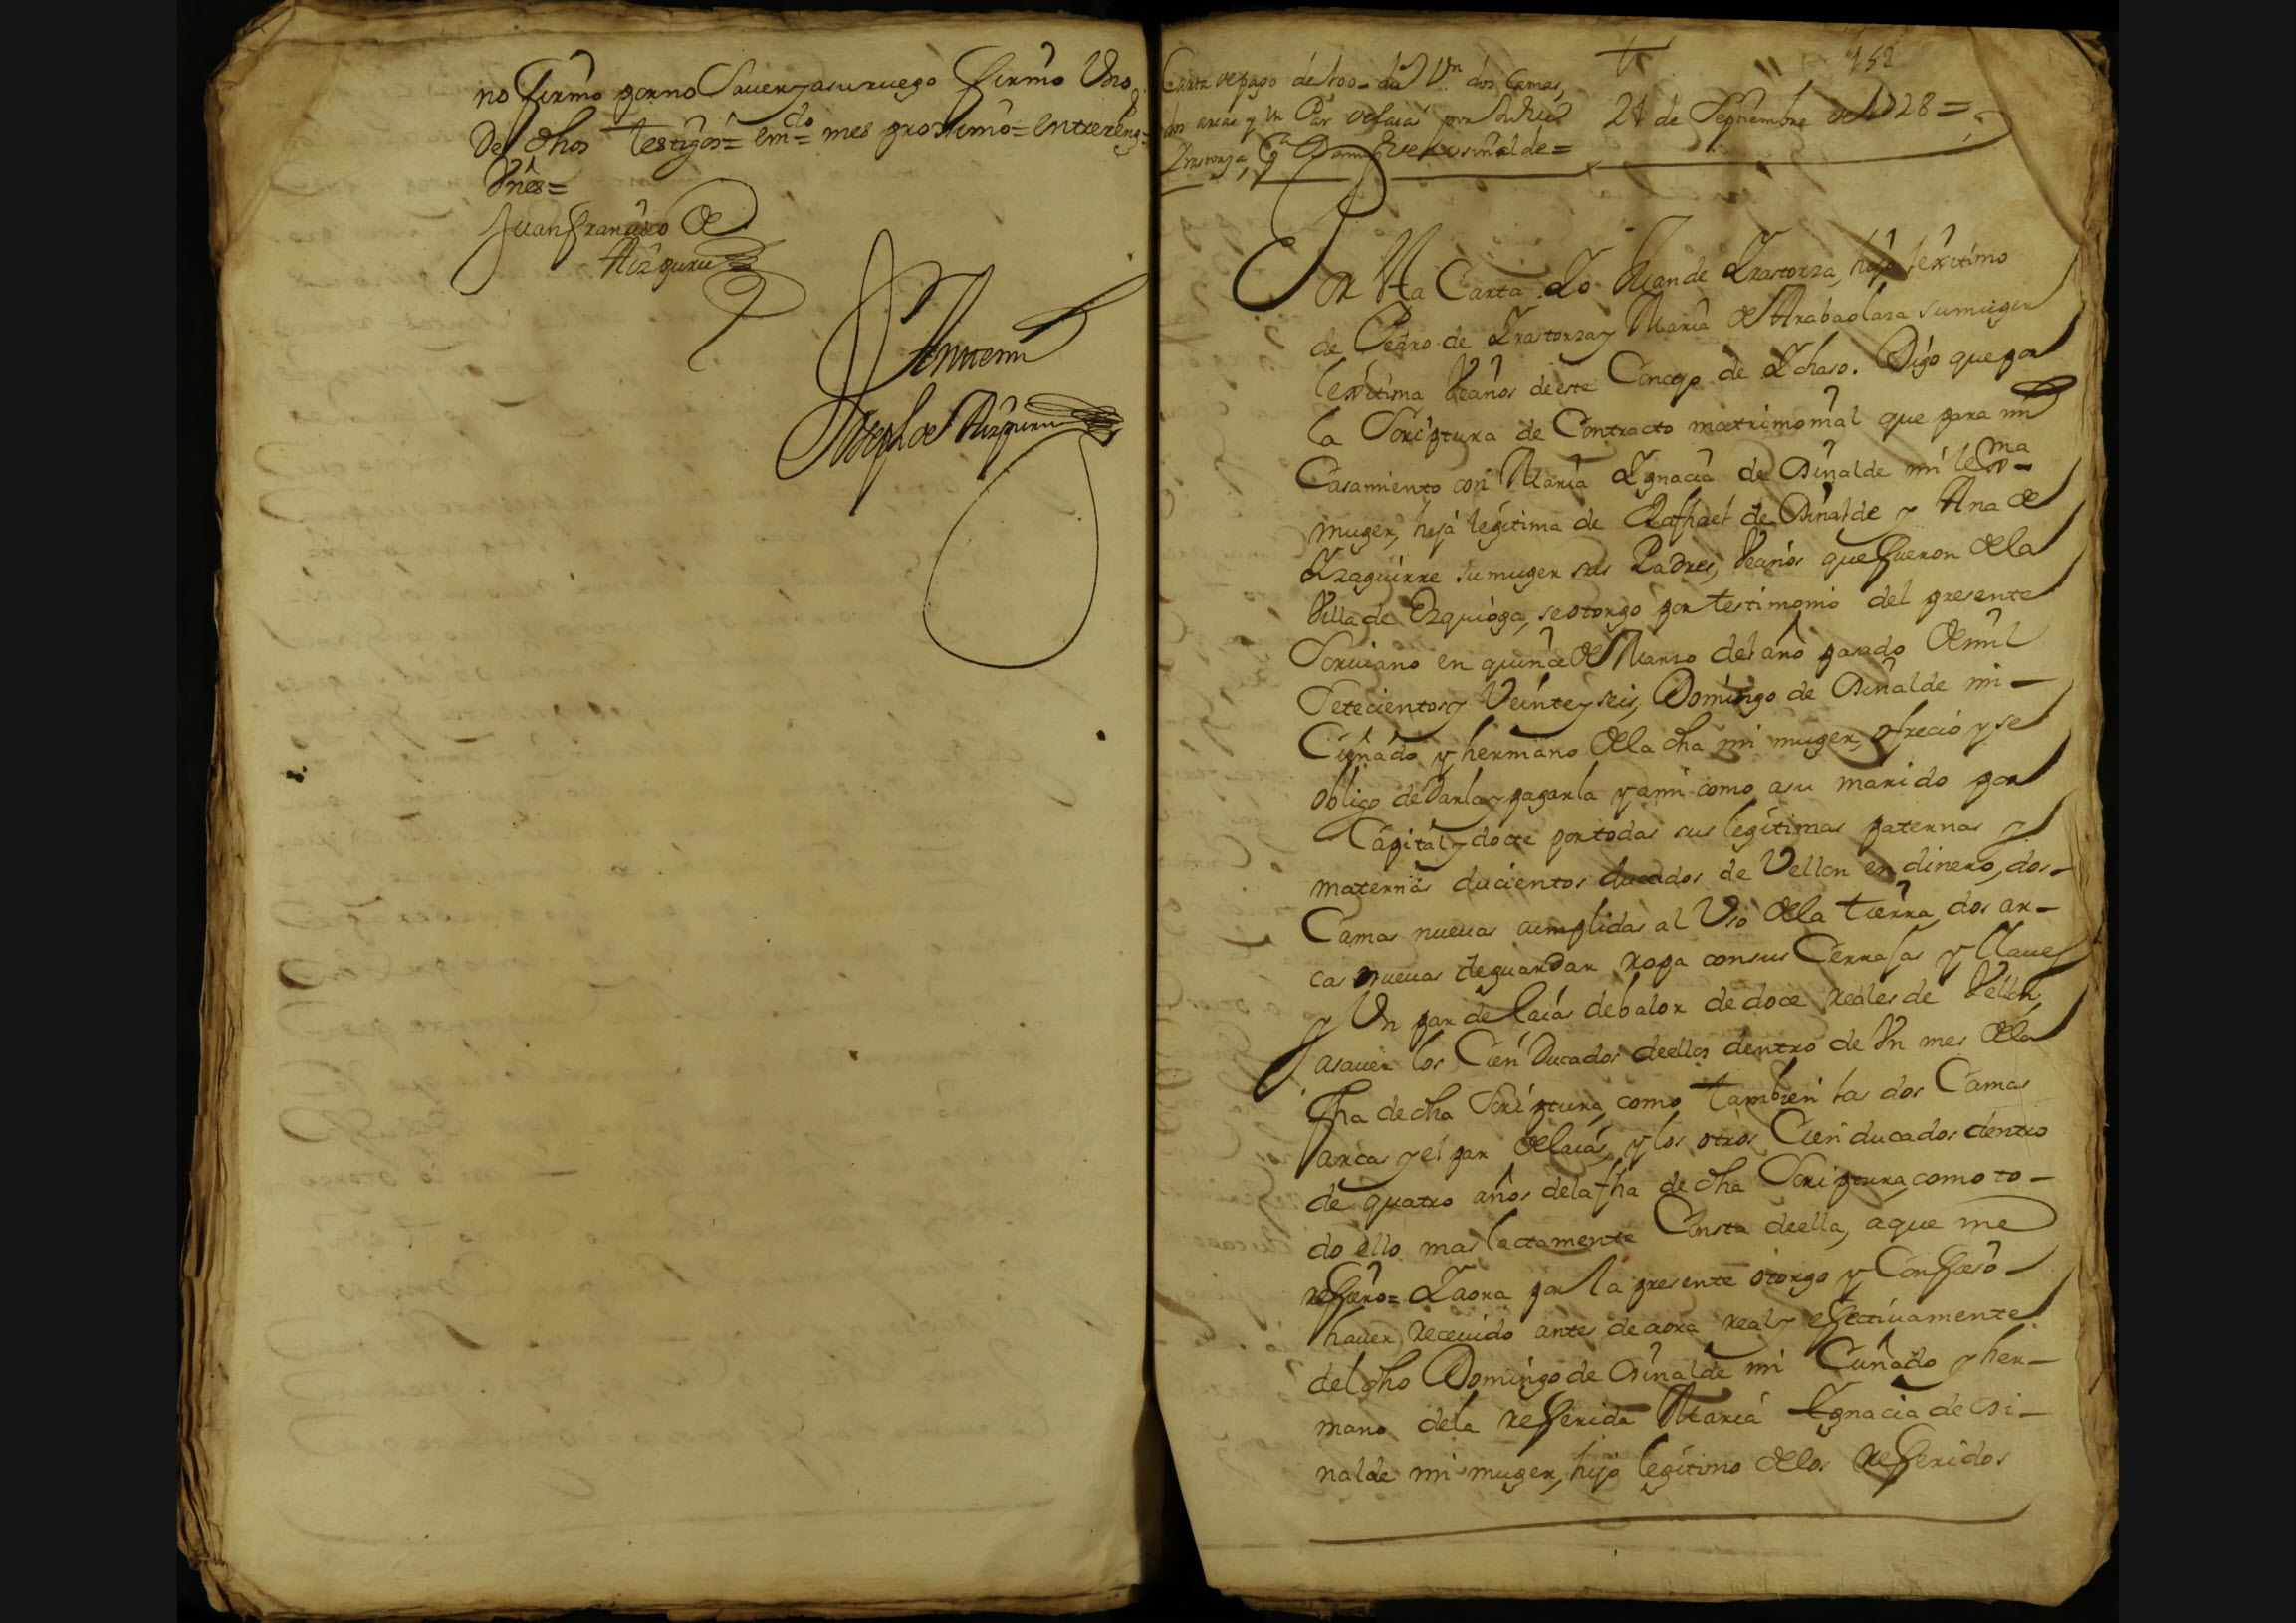 no firmo por no Saver y asu ruego firmo Uno
De dhos testigos = em.do = mes proximo = entrereng.s
Vnes =
Juan Francisco de
Aizpuru
Antemi
Joseph de Aizpuru
152
Carta de pago de 100 du.s V.n dos Camas,
dos arcas y Un Par de laias por Juan de
Yrastorza, C.a Domingo de Osinalde =
21 de Septiembre de 1728 =
Por Esta Carta Yo Juan de Yrastorza, hijo lexitimo
de Pedro de Yrastorza y Maria de Arabaolaza su muger
lexitima Vecinos de este Concejo de Ychaso. Digo que por
la Scriptura de Contracto matrimonial que para mi
Casamiento con Maria Ygnacia de Osinalde mi lex.ma
muger, hija legitima de Rafhael de Osinalde y Ana de
Yzaguirre su muger sus Padres, Vecinos que fueron de la
Villa de Ezquioga, se otorgo por testimonio del presente
Scrivano en quince de Marzo del año pasado de mil
Setecientos y Veinte y seis, Domingo de Osinalde mi
Cuñado y hermano de la dha mi muger, ofrecio y se
obligo de darla y pagarla y ami como asu marido por
Capital y docte por todas sus legitimas paternas y
maternas ducientos ducados de Vellon en dinero, dos
Camas nuevas cumplidas al Uso de la tierra, dos ar-
cas nuevas de guardar ropa con sus Cerrajas y llaves
y Un par de laias de balor de doce reales de Vellon,
asaver los Cien Ducados de ellos dentro de Un mes de la
fha de dha Scriptura, como tambien las dos Camas
arcas y el par de laias, y los otros Cien ducados dentro
de quatro años de la fha de dha Scriptura, como to-
do ello mas lactamente Consta de ella, a que me
reffiero = Y aora por la presente otorgo y Conffieso
haver recevido antes de aora real y effectivamente
del dho Domingo de Osinalde mi Cuñado y her-
mano de la refferida Maria Ygnacia de Osi-
nalde mi muger, hijo legitimo de los refferidos